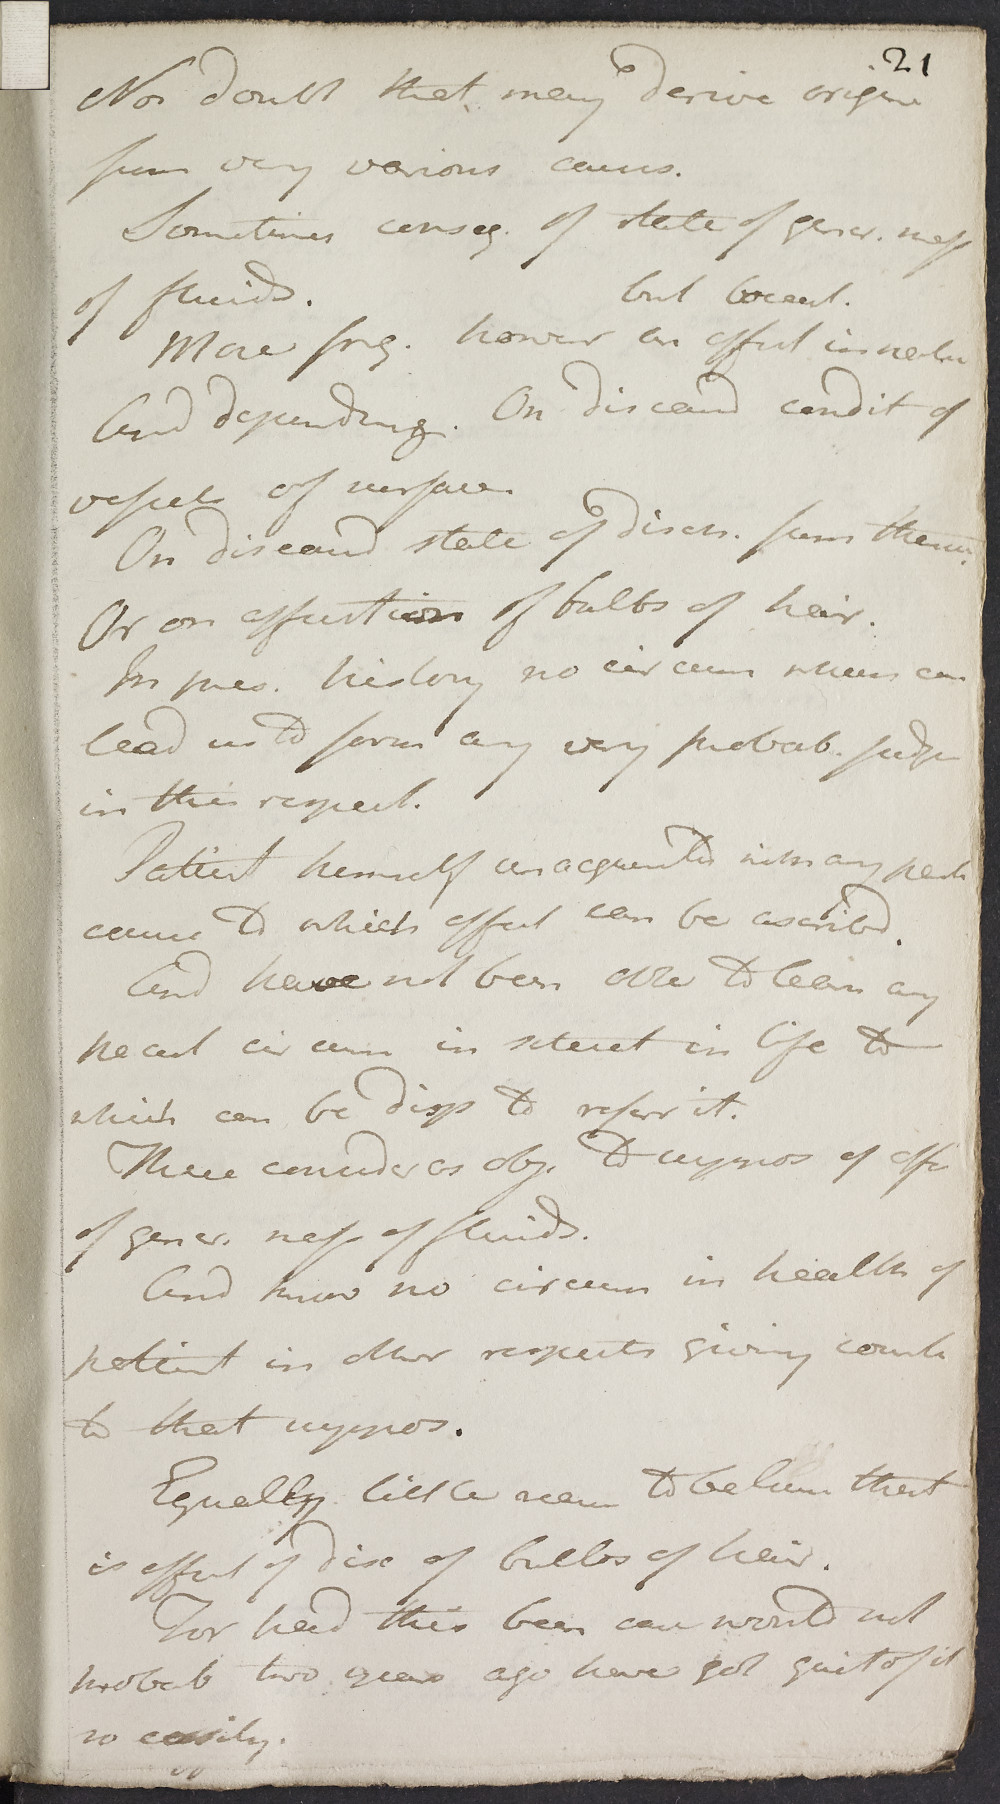 21
No doubt that may derive origin
from very various causes.
Sometimes conseq. of state of gener. mass
of fluids. but local.
More freq. however an affect in
And depending. On diseased condit of
vessels of surface
On diseased state of disch. from them.
Or on affection of bulbs of hair.
In pres. history no circum when can
lead us to form any very probab. judgm
in this respect.
Patient himself unacquainted with any part
cause to which affect can be ascribed.
And have not been able to learn any
pecul circum in situat in life to
which can be disps to refer it.
These consider as obj. to suppos of affe
of gener. mass of fluids.
And know no circum in health of
patient in other respects giving count
to that suppos.
Equally little ream to believe that
is affect of dise of bulbs of hair.
For had this been case would not
probab two years ago have got quit of it
so easily.